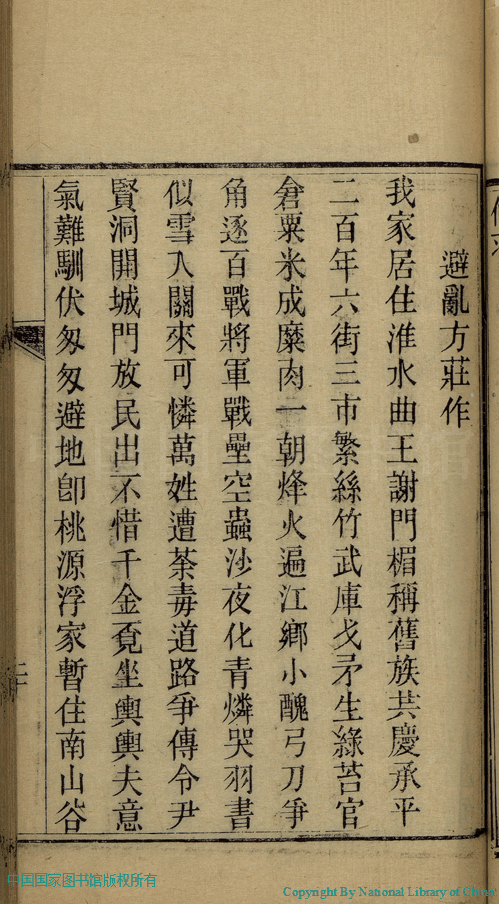 避亂方莊作
我家居住淮水曲王謝門楣稱舊族共慶承平
二百年六街三市繁絲竹武庫戈矛生綠苔官
倉粟米成糜肉一朝烽火遍江鄉小醜弓刀爭
角逐百戰將軍戰壘空蟲沙夜化青燐哭羽書
似雪入關來可憐萬姓遭荼毒道路爭傳令尹
賢洞開城門放民出不惜千金覔坐輿輿夫意
氣難馴伏匆匆避地卽桃源浮家暫住南山谷
中国国家图书馆版权所有
Copyright By National Library of China